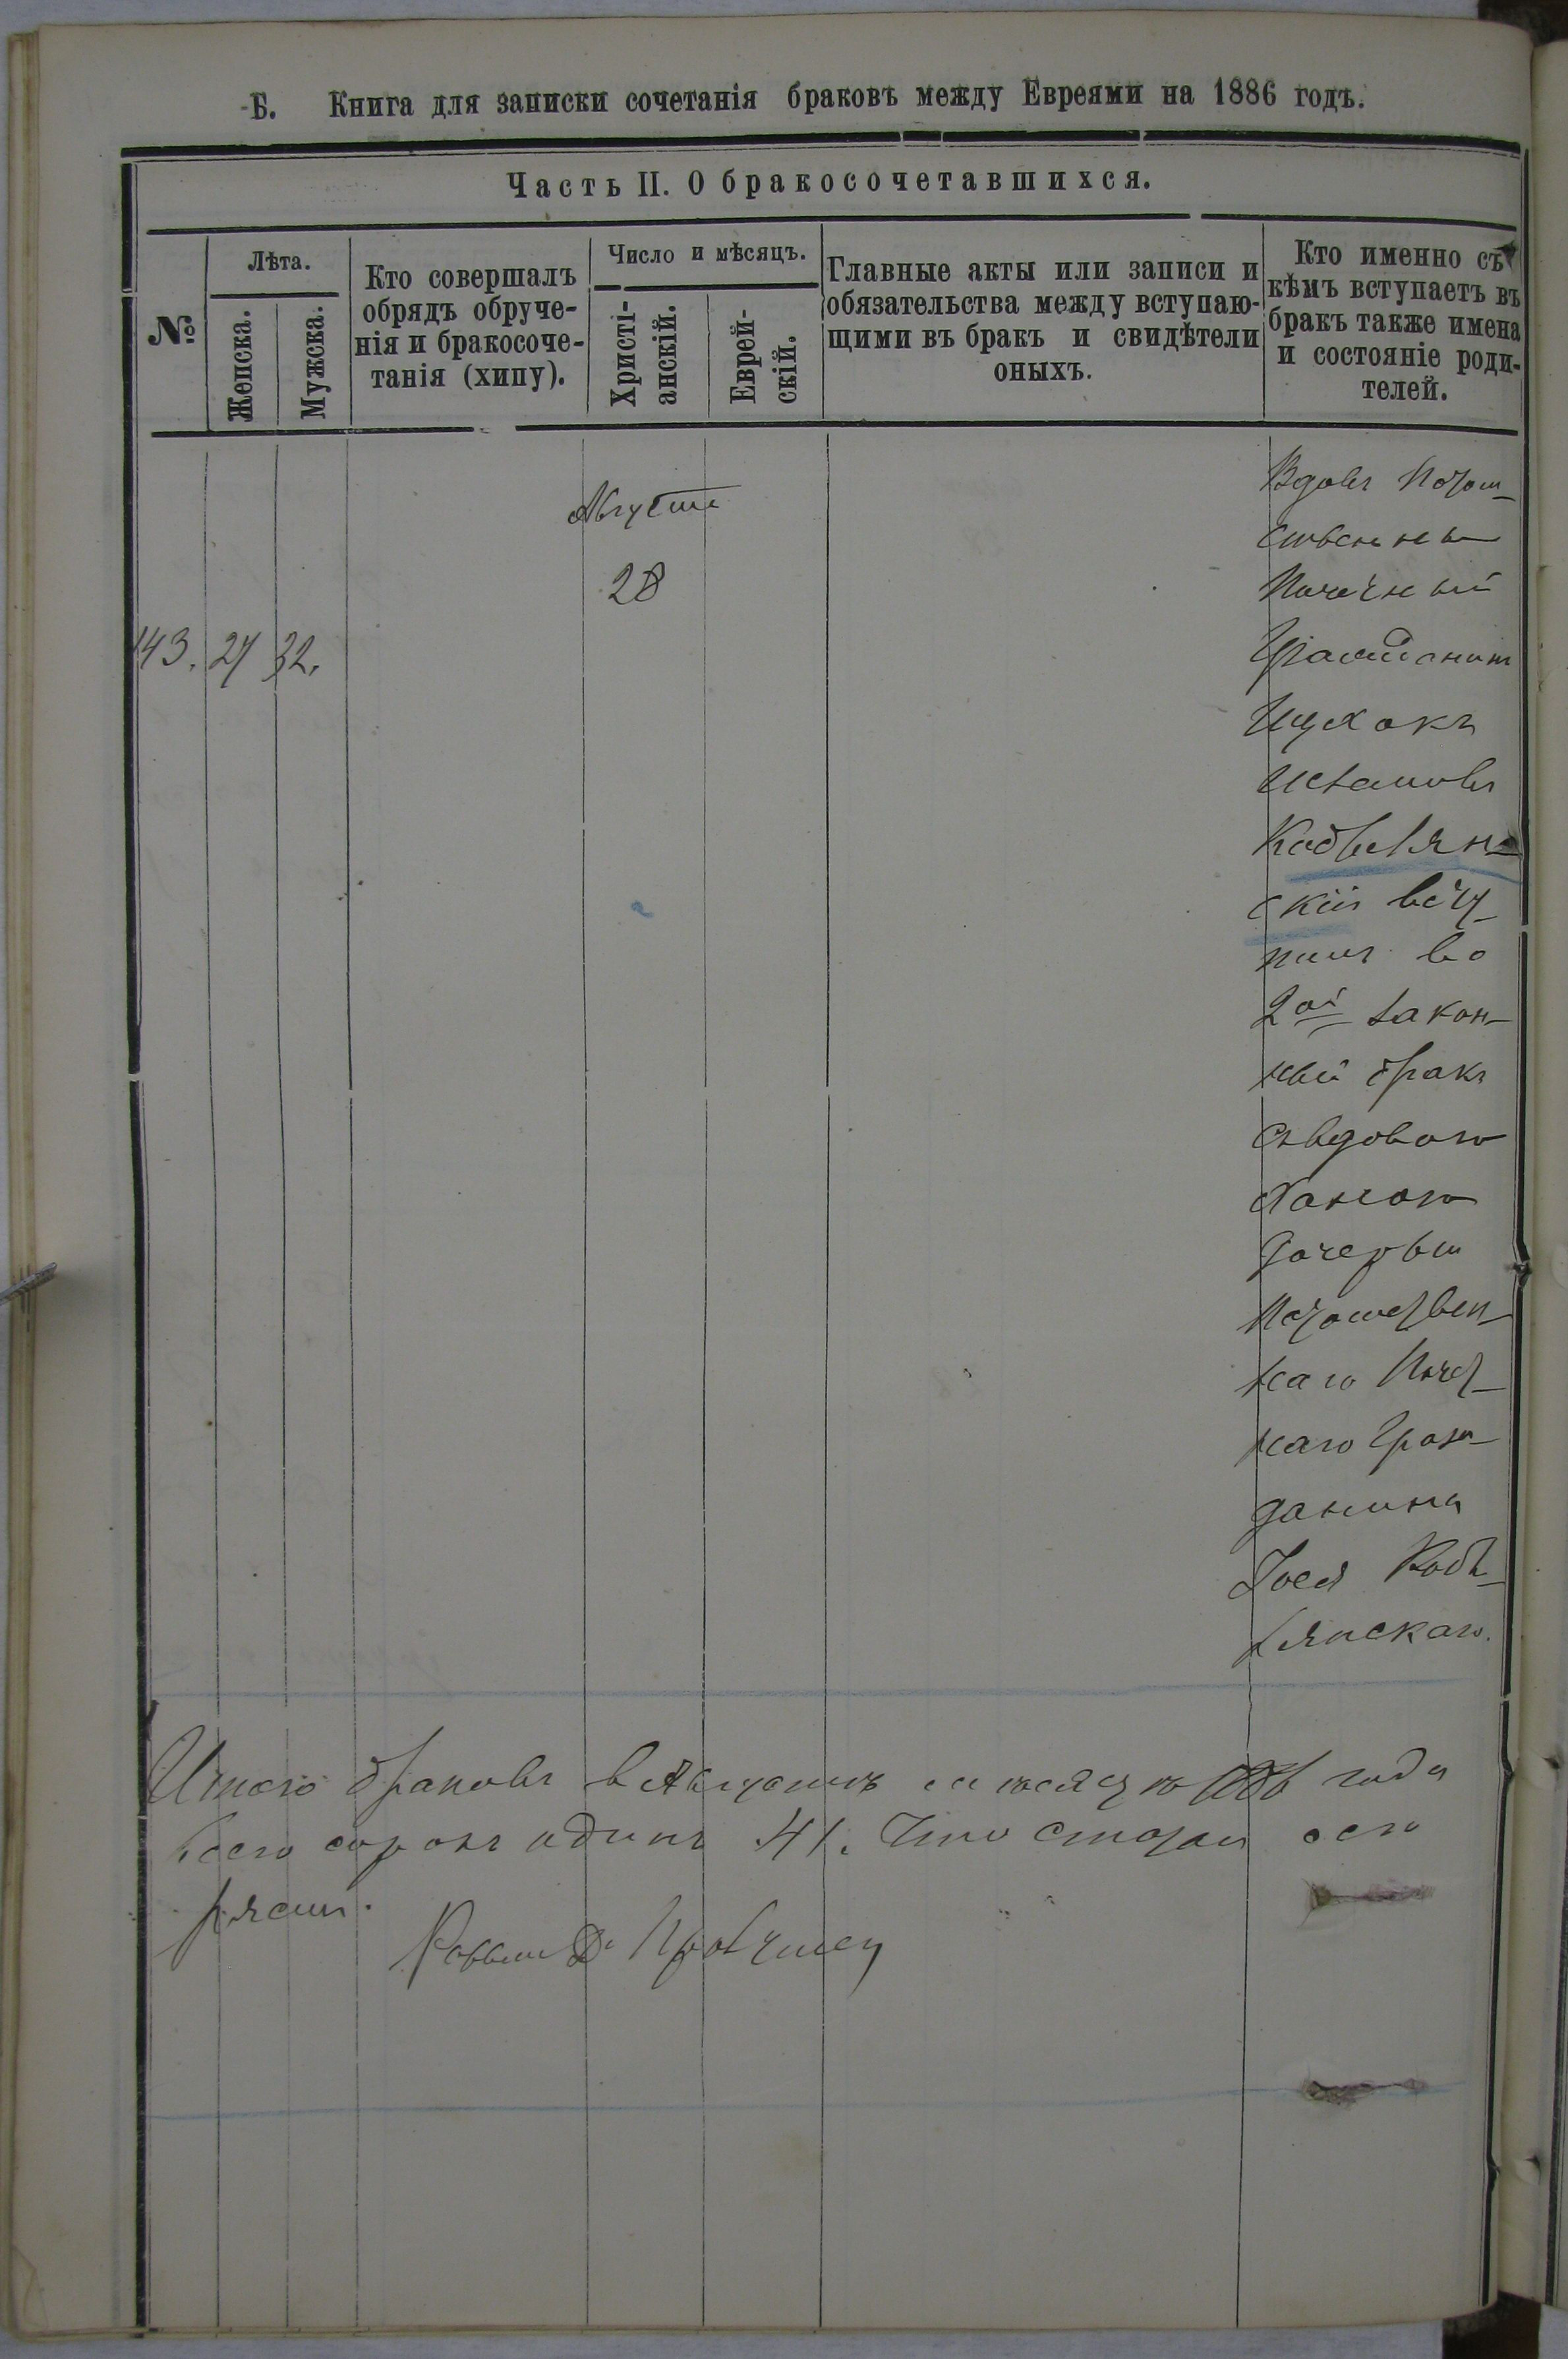 Б. Книга для записки сочетанія браковъ между Евреями на 1886 годъ.
Часть II. О бракосочетавшихся.
№
Лѣта.
Женска.
Мужска.
Кто совершалъ
обрядъ обруче-
нія и бракосоче-
танія (хипу).
Число и мѣсяцъ.
Христі-
анскій.
Еврей-
скій.
Главные акты или записи и
обязательства между вступаю-
щими въ бракъ и свидѣтели
оныхъ.
Кто именно съ
кѣмъ вступаетъ въ
бракъ также имена
и состояніе роди-
телей.
143. 27 32.
Августа
28
Вдовъ Потом-
ственный
Почетный
Гражданинъ
Ицхокъ
Кобылян-
скій всту-
пилъ во
2ой закон-
ный бракъ
съ вдовою
Ханою
дочерью
Потомствен-
наго Почет-
наго Граж-
данина
Іося Кобы-
лянскаго.
Итого браковъ въ Августѣ мѣсяцѣ 1886 года
всего сорокъ одинъ 41. Что
Раввинъ Др